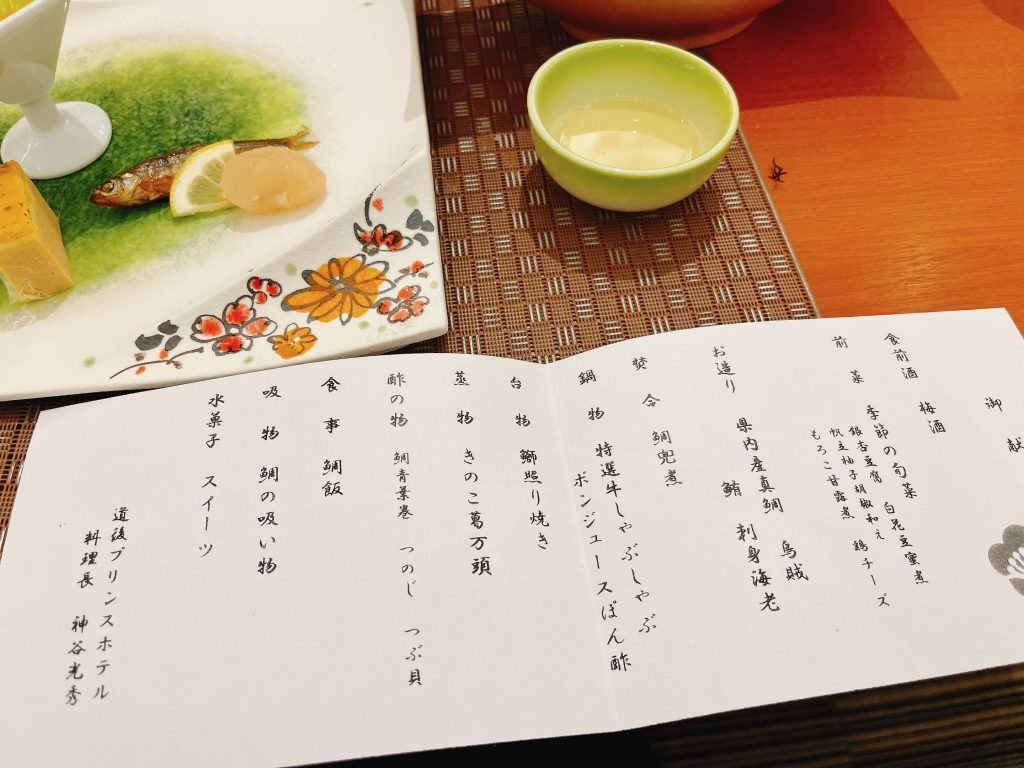 御献
食前酒 梅酒
前菜 季節の旬菜
銀杏豆腐 白花豆蜜煮
帆立柚子胡椒和え 鶏チーズ
もろこ甘露煮
お造り 県内産真鯛 烏賊
鮪 刺身海老
焚合 鯛兜煮
鍋物 特選牛しゃぶしゃぶ
ポンジュースぽん酢
台物 鰤照り焼き
蒸物 きのこ葛万頭
酢の物 鯛青葉巻 つのじ つぶ貝
食事 鯛飯
吸物 鯛の吸い物
水菓子 スイーツ
道後プリンスホテル
料理長 神谷光秀